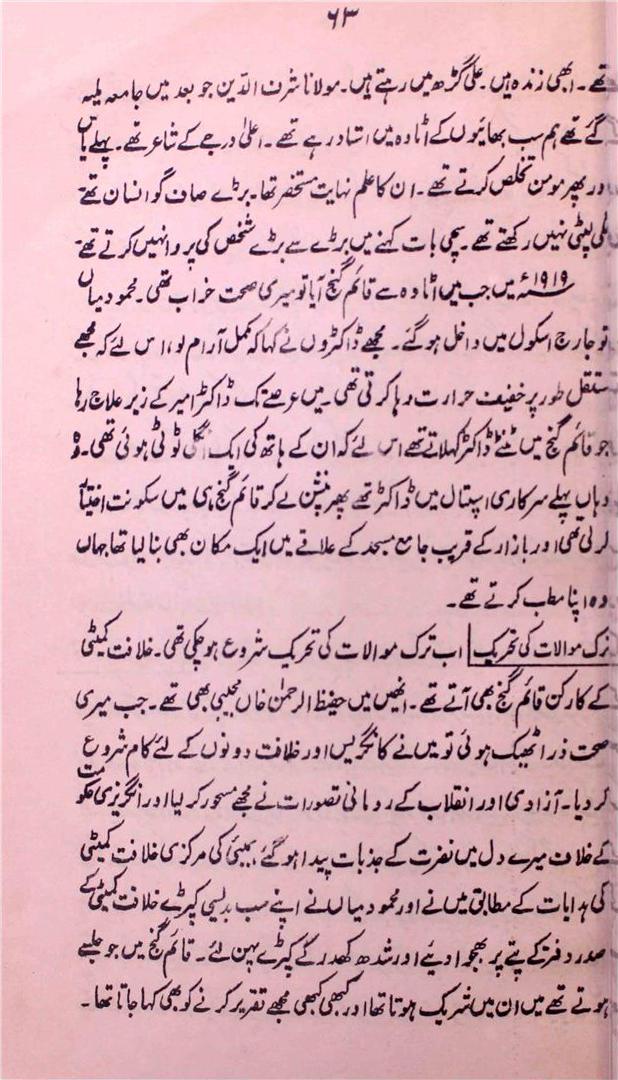 ۶۳
تھے۔ ابھی زندہ ہیں۔ علی گڑھ میں رہتے ہیں۔ مولانا شرف الدین جو بعد میں جامعہ ملیہ
گئے تھے ہم سب بھائیوں کے اٹاوہ میں استاد رہے تھے۔ اعلیٰ درجے کے شاعر تھے۔ پہلے یاس
اور پھر مومن تخلص کرتے تھے۔ ان کا علم نہایت مستحضر تھا۔ بڑے صاف گو انسان تھے
لگی لپٹی نہیں رکھتے تھے۔ سچی بات کہنے میں بڑے سے بڑے شخص کی پروا نہیں کرتے تھے۔
۱۹۱۹ء میں جب میں اٹاوہ سے قائم گنج آیا تو میری صحت خراب تھی۔ محمود میاں
تو جارج اسکول میں داخل ہو گئے۔ مجھے ڈاکٹروں نے کہا کہ مکمل آرام لو، اس لئے کہ مجھے
مستقل طور پر خفیف حرارت رہا کرتی تھی۔ میں عرصے تک ڈاکٹر امیر کے زیر علاج رہا
جو قائم گنج میں ٹنٹے ڈاکٹر کہلاتے تھے اس لئے کہ ان کے ہاتھ کی ایک انگلی ٹوٹی ہوئی تھی۔ وہ
وہاں پہلے سرکاری اسپتال میں ڈاکٹر تھے پھر پنشن لے کر قائم گنج ہی میں سکونت اختیار
کر لی تھی اور بازار کے قریب جامع مسجد کے علاقے میں ایک مکان بھی بنا لیا تھا جہاں
وہ اپنا مطب کرتے تھے۔
ترک موالات کی تحریک اب ترک موالات کی تحریک شروع ہو چکی تھی۔ خلافت کمیٹی
کے کارکن قائم گنج بھی آتے تھے۔ انھیں میں حفیظ الرحمٰن خاں مجیبی بھی تھے۔ جب میری
صحت ذرا ٹھیک ہوئی تو میں نے کانگریس اور خلافت دونوں کے لئے کام شروع
کر دیا۔ آزادی اور انقلاب کے رومانی تصورات نے مجھے مسحور کر لیا اور انگریزی حکومت
کے خلاف میرے دل میں نفرت کے جذبات پیدا ہو گئے، بمبئی کی مرکزی خلافت کمیٹی
کی ہدایات کے مطابق میں نے اور محمود میاں نے اپنے سب بدیسی کپڑے خلافت کمیٹی کے
صدر دفتر کے پتے پر بھجوا دئیے اور شدھ کھدر کے کپڑے پہن لئے۔ قائم گنج میں جو جلسے
ہوتے تھے میں ان میں شریک ہوتا تھا اور کبھی کبھی مجھے تقریر کرنے کو بھی کہا جاتا تھا۔